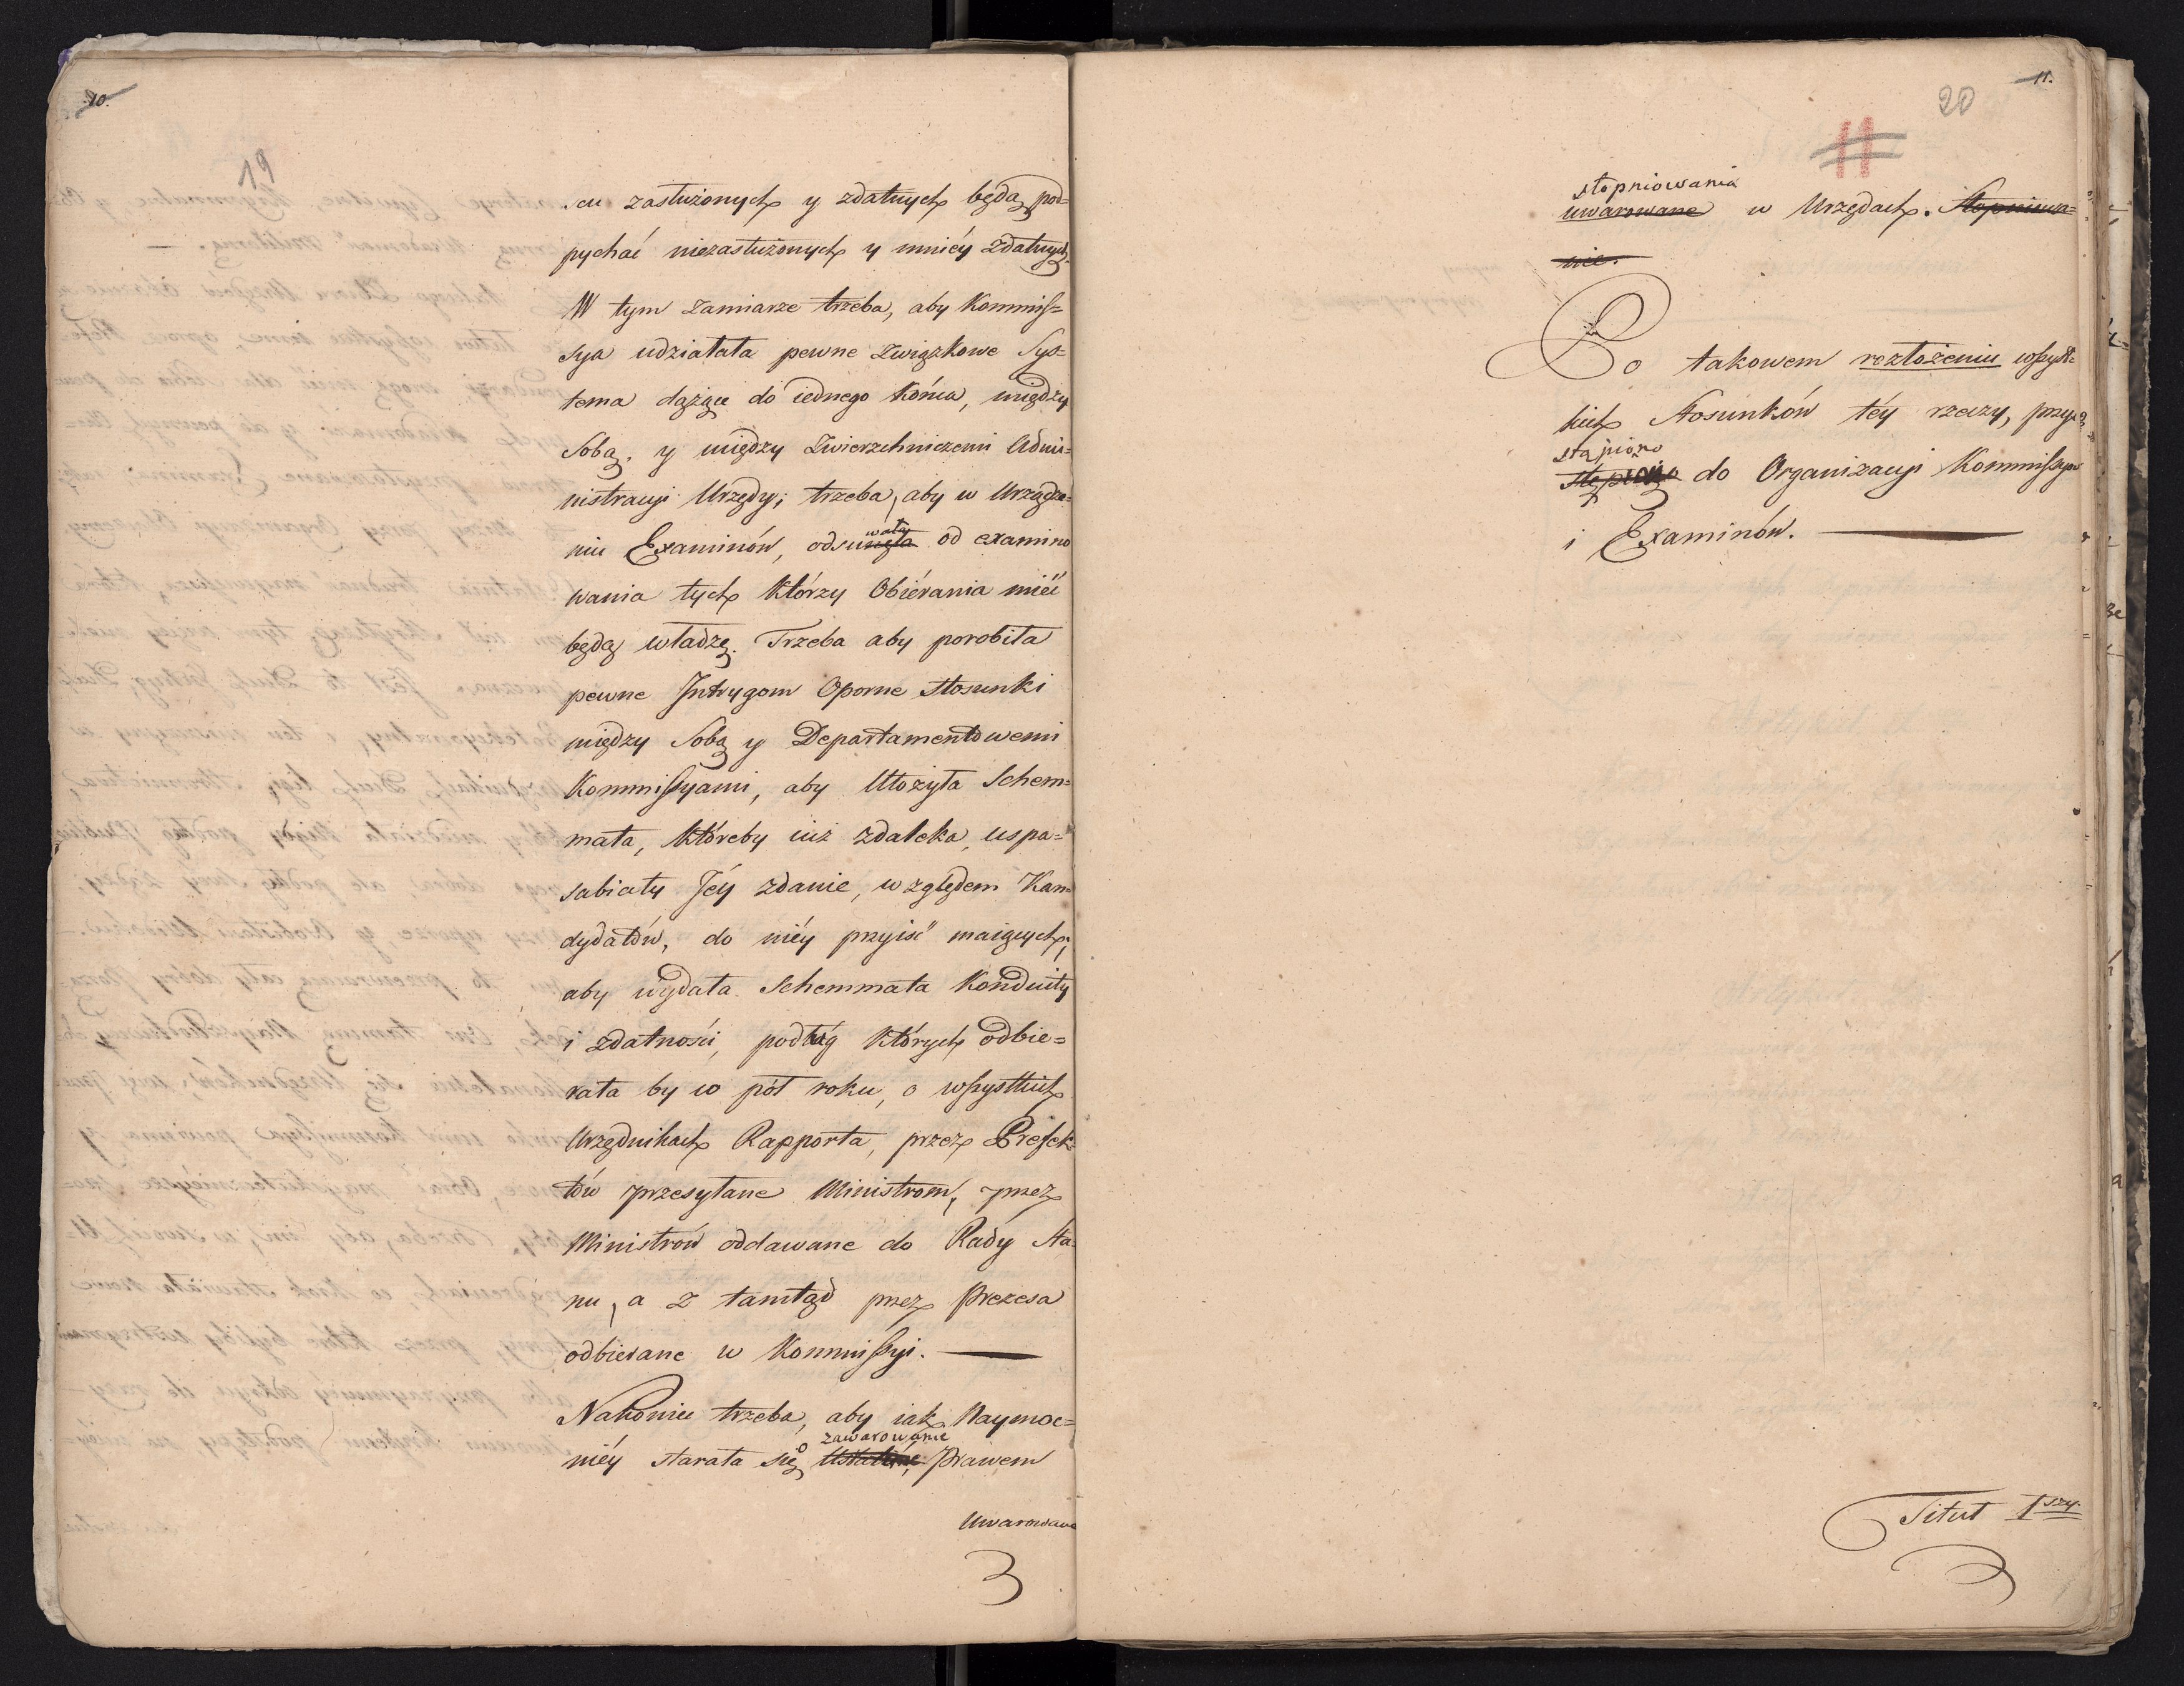 10.
19
scu zasłużonych y zdatnych będą pod=
pychać niezasłużonych y mniéy zdatnych.
W tym zamiarze trzeba, aby Kommis=
sya udziałała pewne związkowe Sys=
tema dążące do iednego końca, między
Sobą. y między Zwierzchniczemi Admi=
nistracyi Urzędy; trzeba, aby w Urządze=
niu Examinów, odsunęła wała od examino
wania tych którzy Obiérania mieć
będą władzę. Trzeba aby porobiła
pewne Intrygom Oporne Stosunki
między Sobą y Departamentowemi
Kommissyami, aby Ułożyła Schem=
mata, któreby iuż zdaleka, uspa=
sabiały Jéy zdanie, względem Kan=
dydatów, do niéy przyiść maiących;
aby wydała Schemmata Konduity
i zdatności, podług których odbie=
rała by w pół roku, o wszystkich
Urzędnikach Rapporta, przez Prefek=
tów przesyłane Ministrom, przez
Ministrów oddawane do Rady Sta=
nu, a z tamtąd przez Prezesa
odbierane w Kommissyi. —
Nakoniec trzeba, aby iak Naymoc=
zawarowanie
niéy starała się o Prawem
Uwarowane
11.
20
11
stopniowania
uwarowane w Urzędach. Stopniowa=
nie.
Po takowem rozłożeniu wszyst=
kich Stosunków téy rzeczy, przy=
stąpiono
do Organizacyi Kommissyów
i Examinów. —
Tituł 1szy.